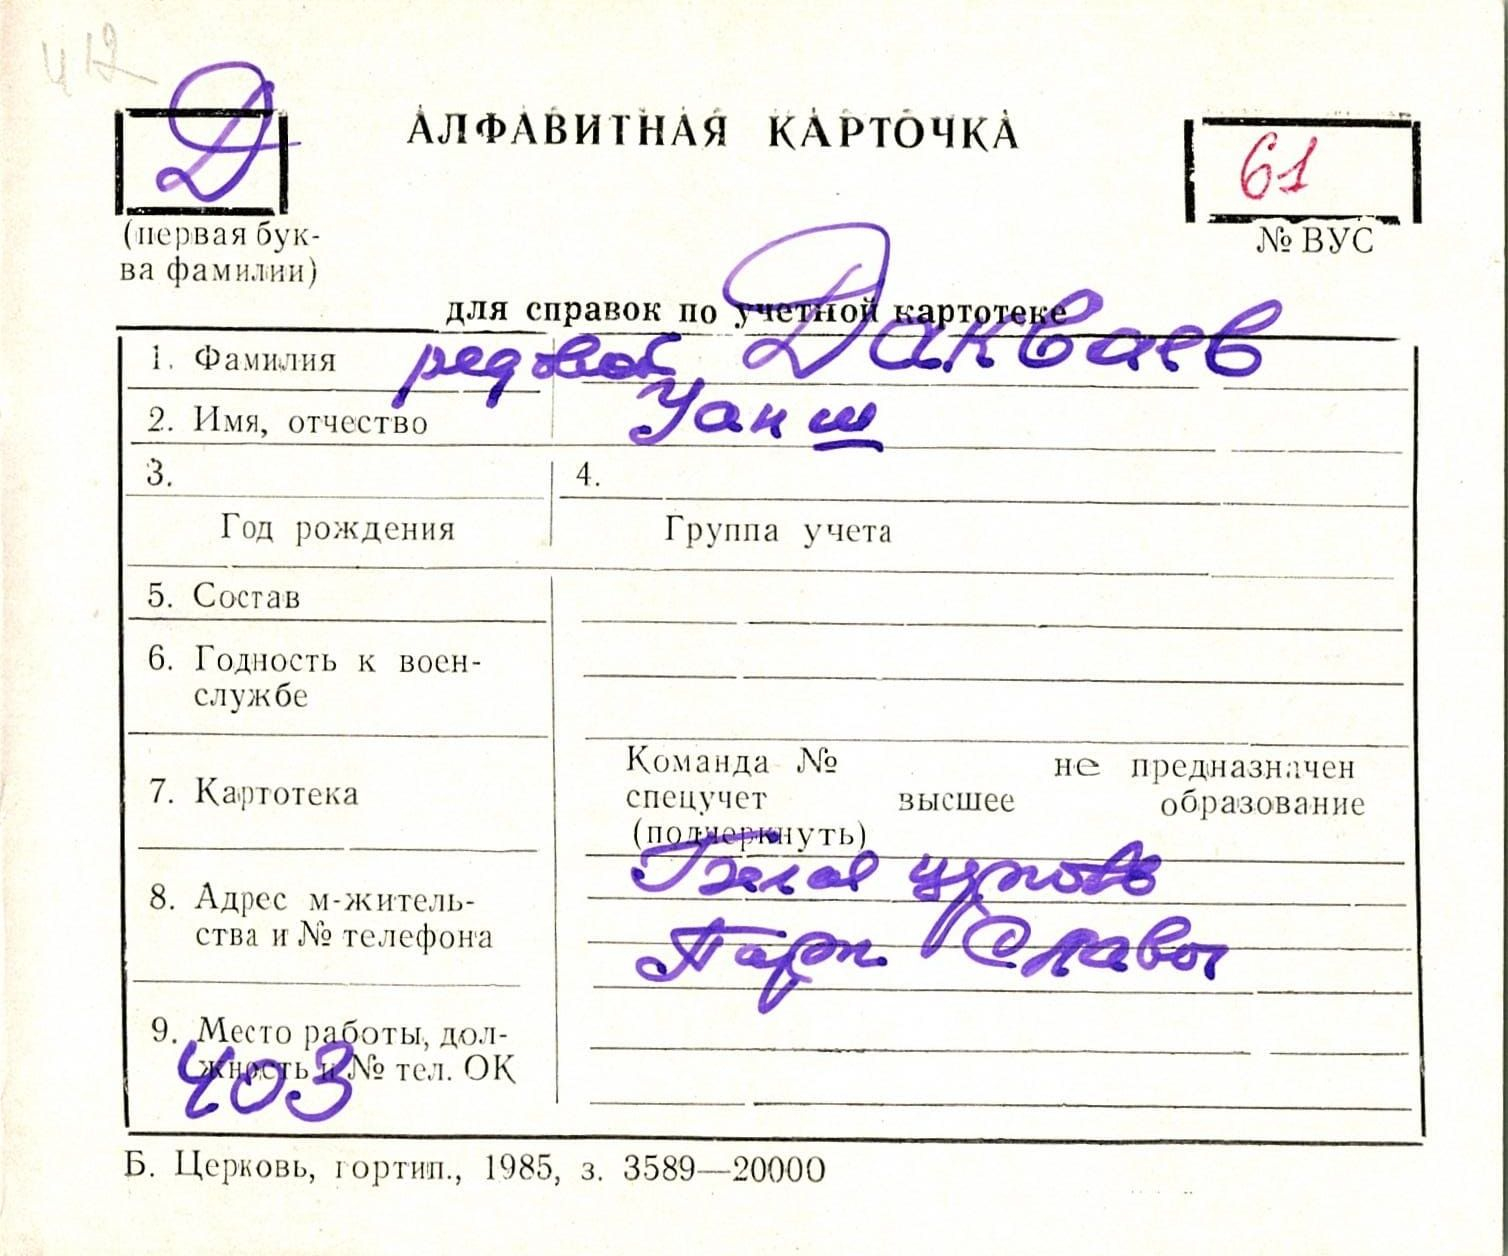 412
Д
АЛФАВИТНАЯ КАРТОЧКА
61
(первая бук-
ва фамилии)
№ ВУС
для справок по учетной картотеке
1. Фамилия редовой Дакваев
2. Имя, отчество Уанш
3.
4.
Год рождения
Группа учета
5. Состав
6. Годность к воен-
службе
Команда № не предназначен
7. Картотека
спецучет высшее образование
(подчеркнуть)
Белая церковь
8. Адрес м-житель-
ства и № телефона
Парк Славы
9. Место работы, дол-
жность и № тел. ОК
403
Б. Церковь, гортип., 1985, з. 3589—20000